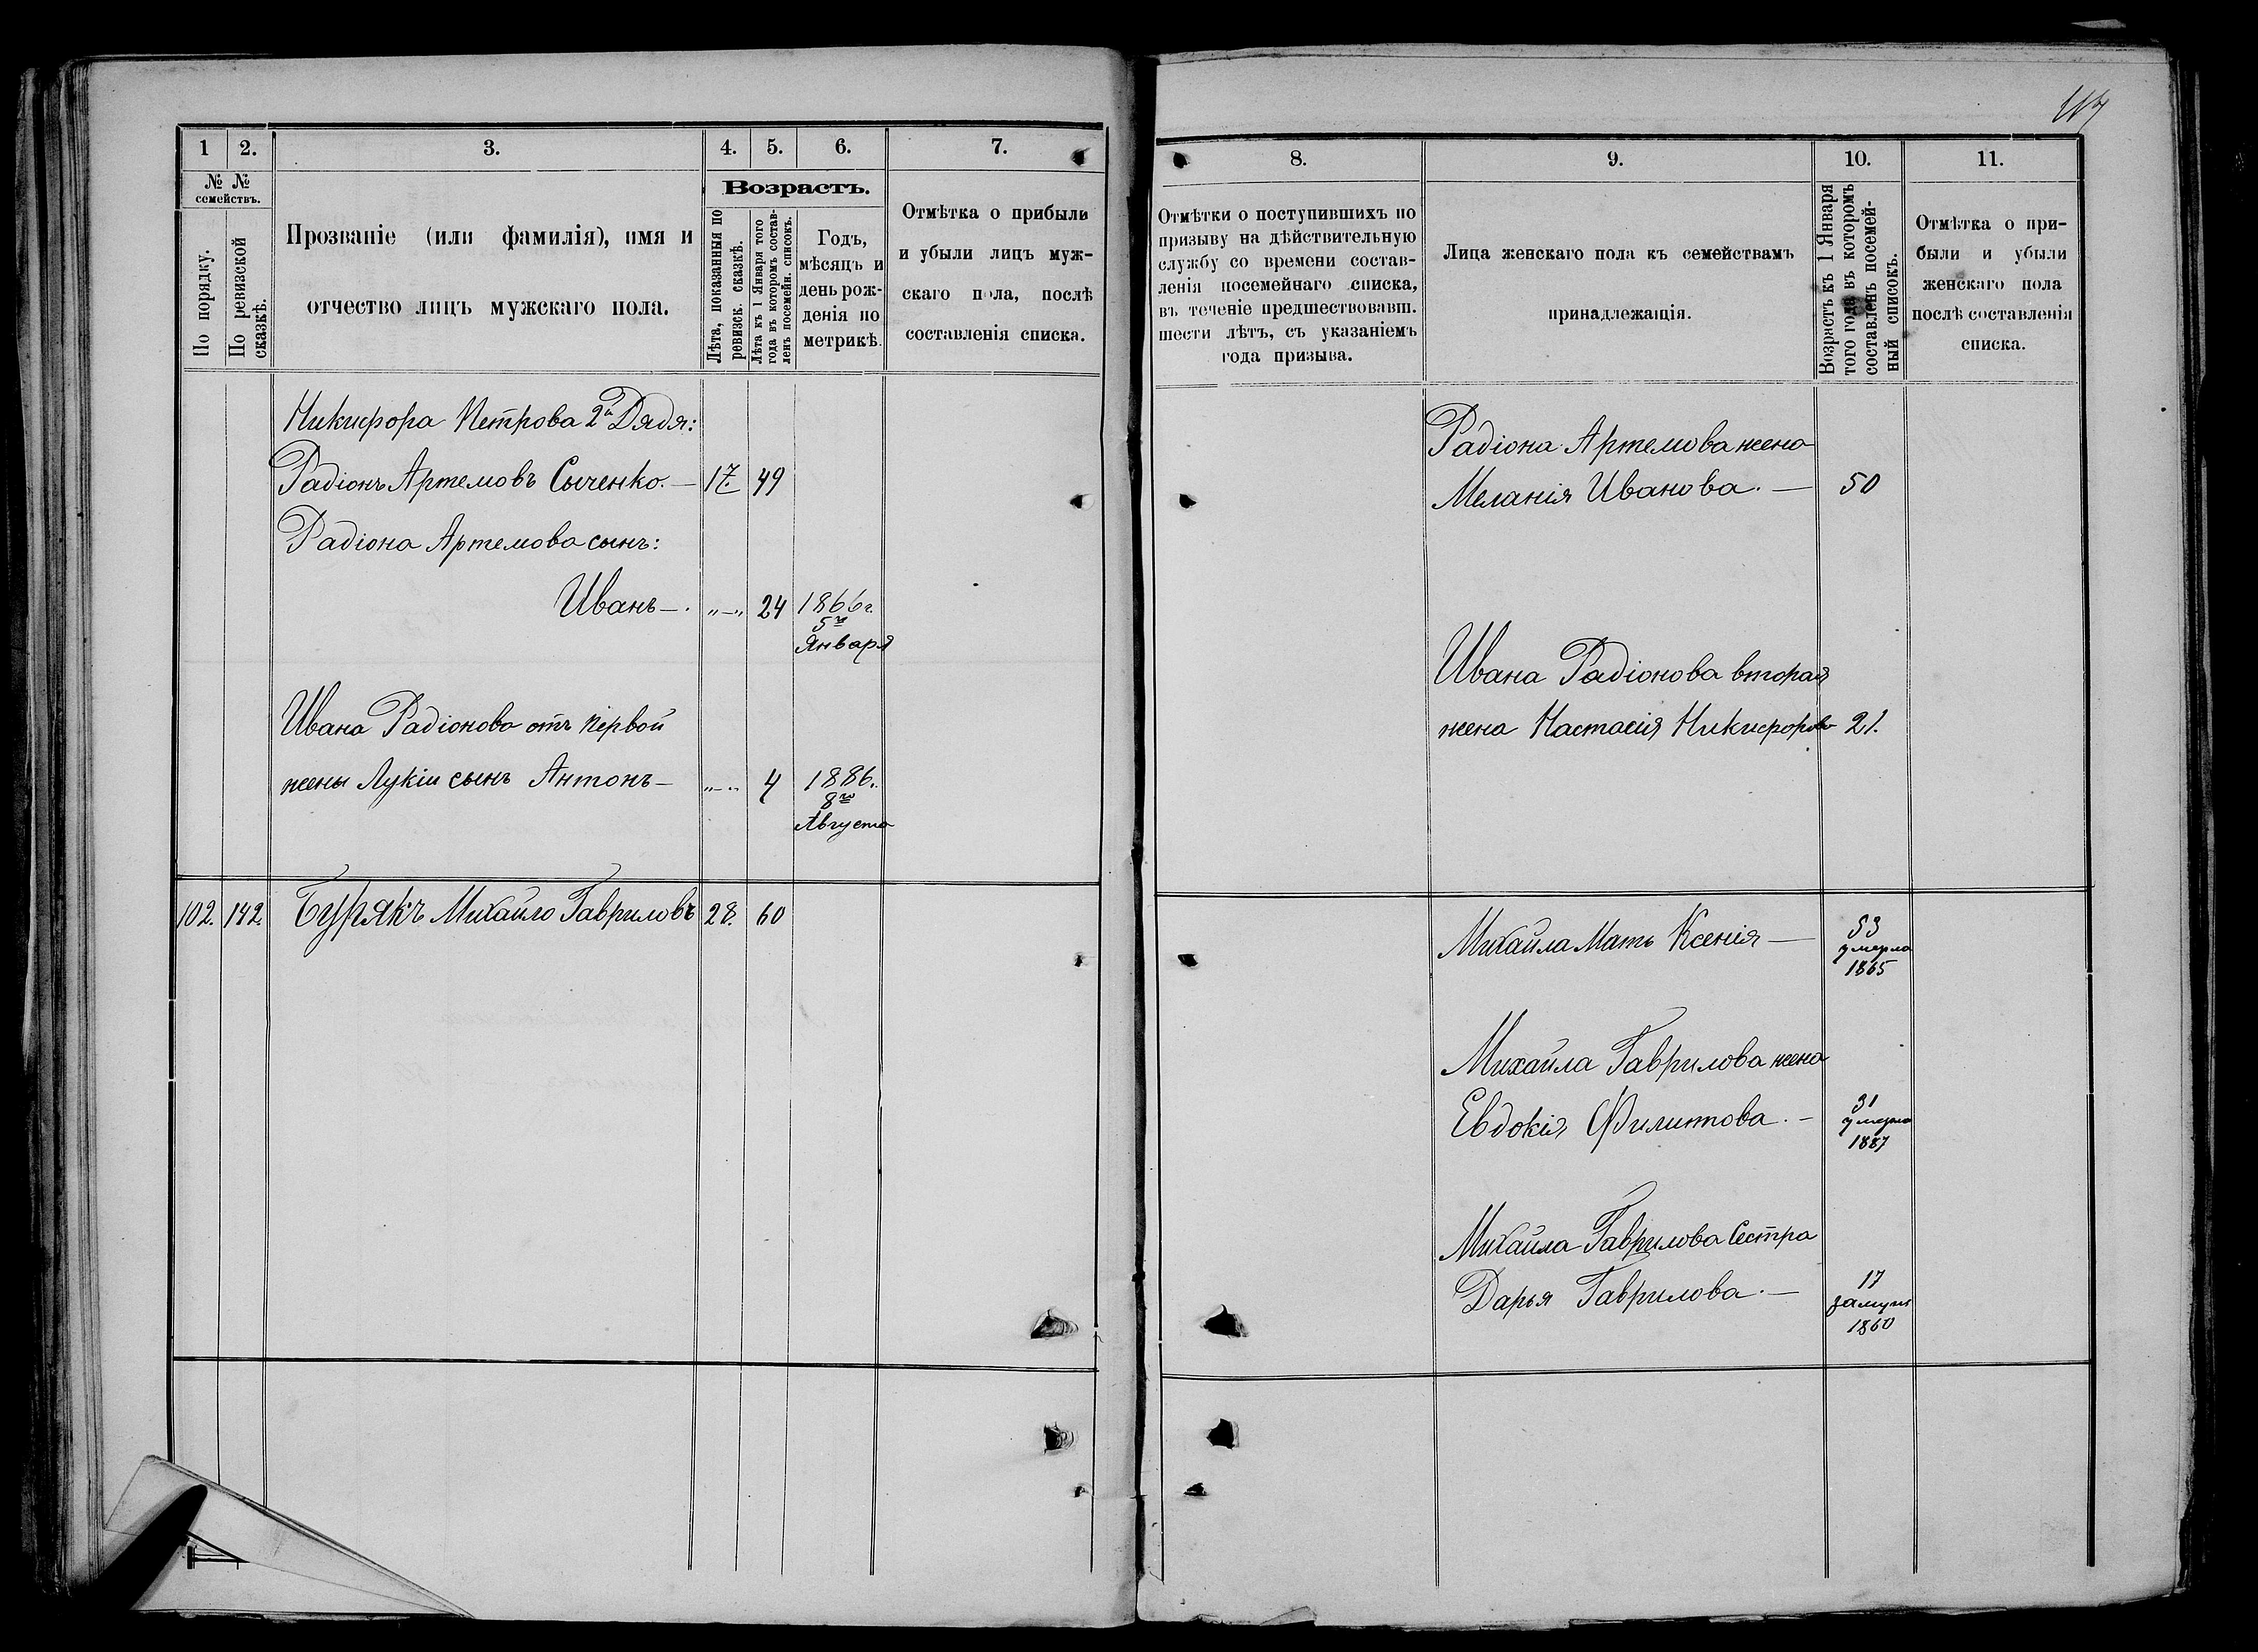 117
1 2. 3. 4. 5. 6. 7.
№ №
семействъ.
По порядку.
По ревизской
сказкѣ.
Прозваніе (или фамилія), имя и
отчество лицъ мужскаго пола.
Возрастъ.
Лѣта, показанныя по
ревизск. сказкѣ.
Лѣта къ 1 Января того
года въ которомъ состав-
ленъ посемейн. списокъ.
Годъ,
мѣсяцъ и
день рож-
денія по
метрикѣ.
Отмѣтка о прибыли
и убыли лицъ муж-
скаго пола, послѣ
составленія списка.
Никифора Петрова 2й Дядя:
Радіонъ Артемовъ Сыченко. — 17. 49
Радіона Артемова сынъ:
Иванъ —. „—„ 24 1866г.
5го
Января
Ивана Радіонова отъ первой
жены Лукіи сынъ Антонъ — „—„ 4 1886г.
8го
Августа
102. 142. Бурякъ Михайло Гавриловъ 28. 60
8. 9. 10. 11.
Отмѣтки о поступившихъ по
призыву на дѣйствительную
службу со времени состав-
ленія посемейнаго списка,
въ теченіе предшествовавш.
шести лѣтъ, съ указаніемъ
года призыва.
Лица женскаго пола къ семействамъ
принадлежащія.
Возрастъ къ 1 Января
того года въ которомъ
составленъ посемей-
ный списокъ.
Отмѣтка о при-
были и убыли
женскаго пола
послѣ составленія
списка.
Радіона Артемова жена
Меланія Иванова. — 50
Ивана Радіонова вторая
жена Настасія Никифорова 21.
Михайла Мать Ксенія — 53
умерла
1865
Михайла Гаврилова жена
Евдокія Филиппова. — 31
умерла
1887
Михайла Гаврилова Сестра
Дарья Гаврилова. — 17
замуж
1860